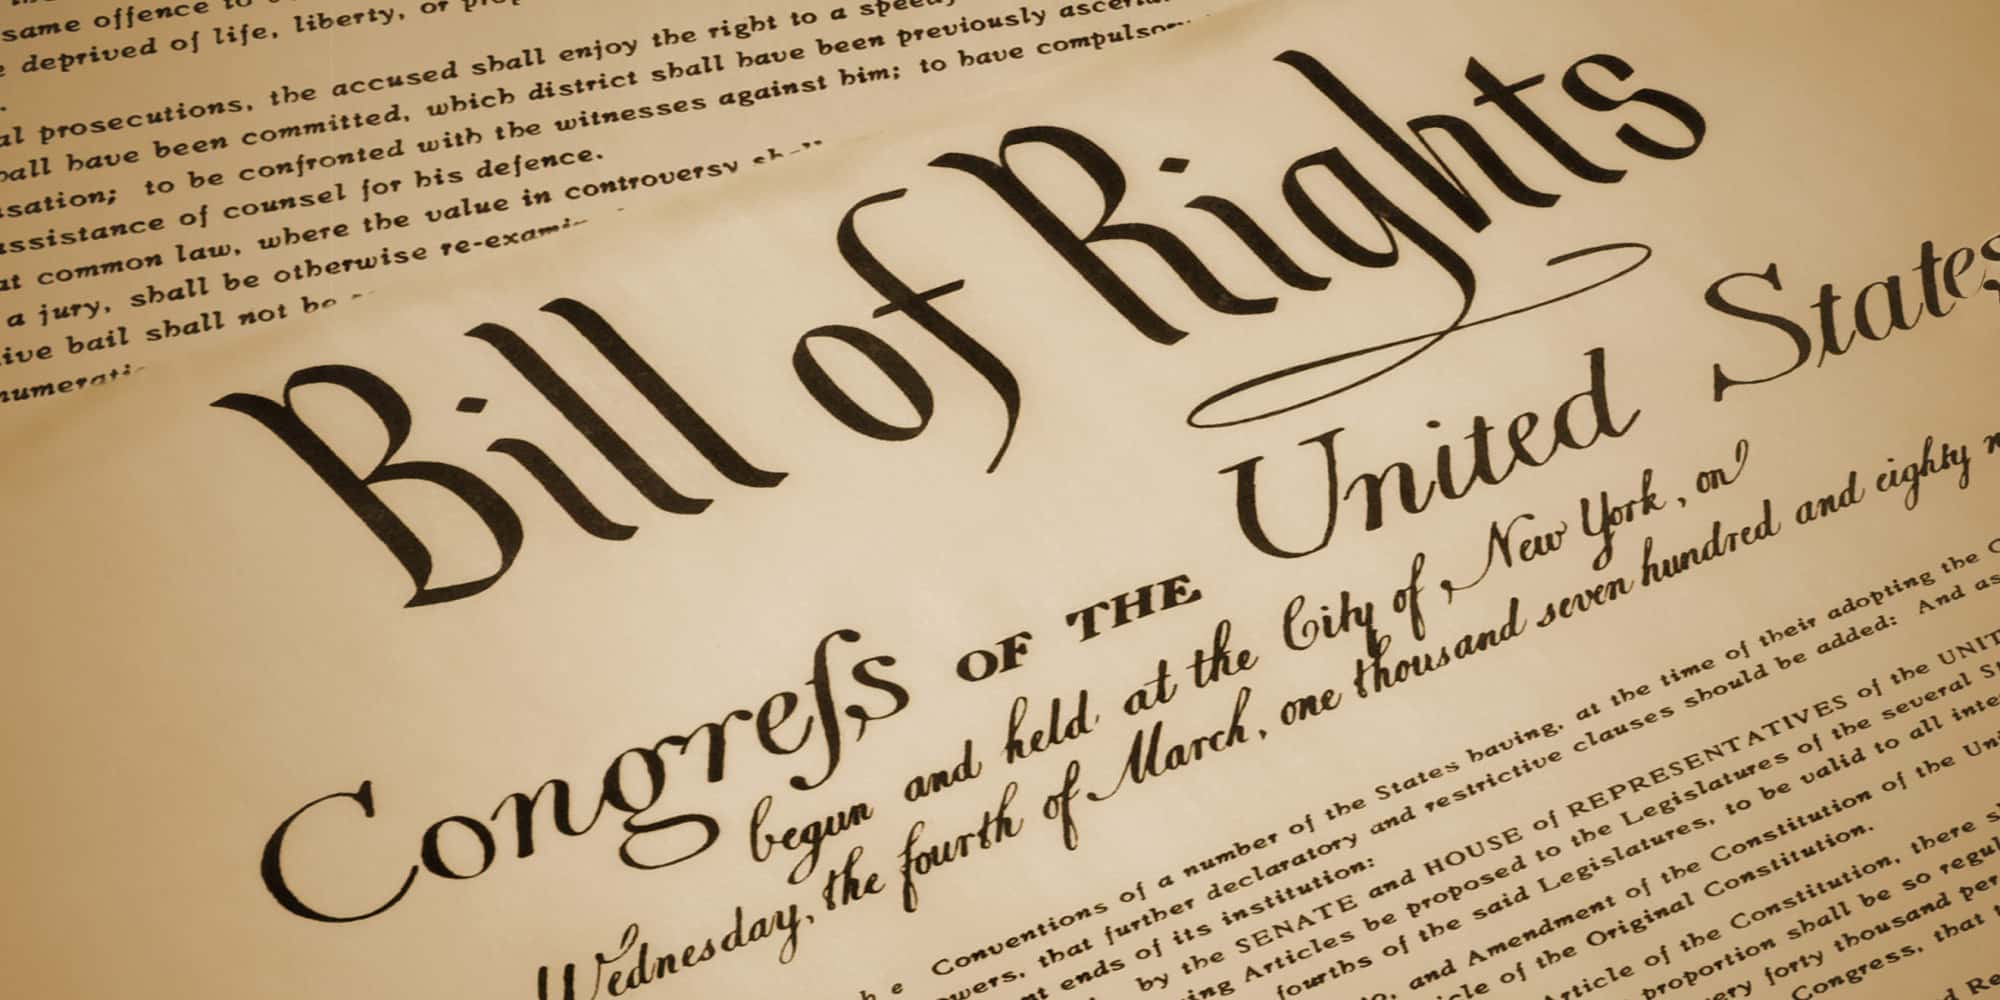 same offence to
deprived of life, liberty, or
prosecutions, the accused shall enjoy the right to a speedy
have been committed, which district shall have been previously
to be confronted with the witnesses against him; to have
assistance of counsel for his defence.
at common law, where the value in controversy
a jury, shall be otherwise
bail shall not be
Bill of Rights
Congreſs OF THE United States
begun and held at the City of New York, on
Wednesday, the fourth of March, one thousand seven hundred and eighty
Conventions of a number of the States having, at the time of their adopting the
that further declaratory and restrictive clauses should be added: And as
ends of its institution:
by the SENATE and HOUSE of REPRESENTATIVES of the
Articles be proposed to the Legislatures of the several
fourths of the said Legislatures, to be valid to all
and Amendment of the Constitution of the
of the Original Constitution.
Article of the Constitution, there
proportion shall be so
forty thousand
Congress, that